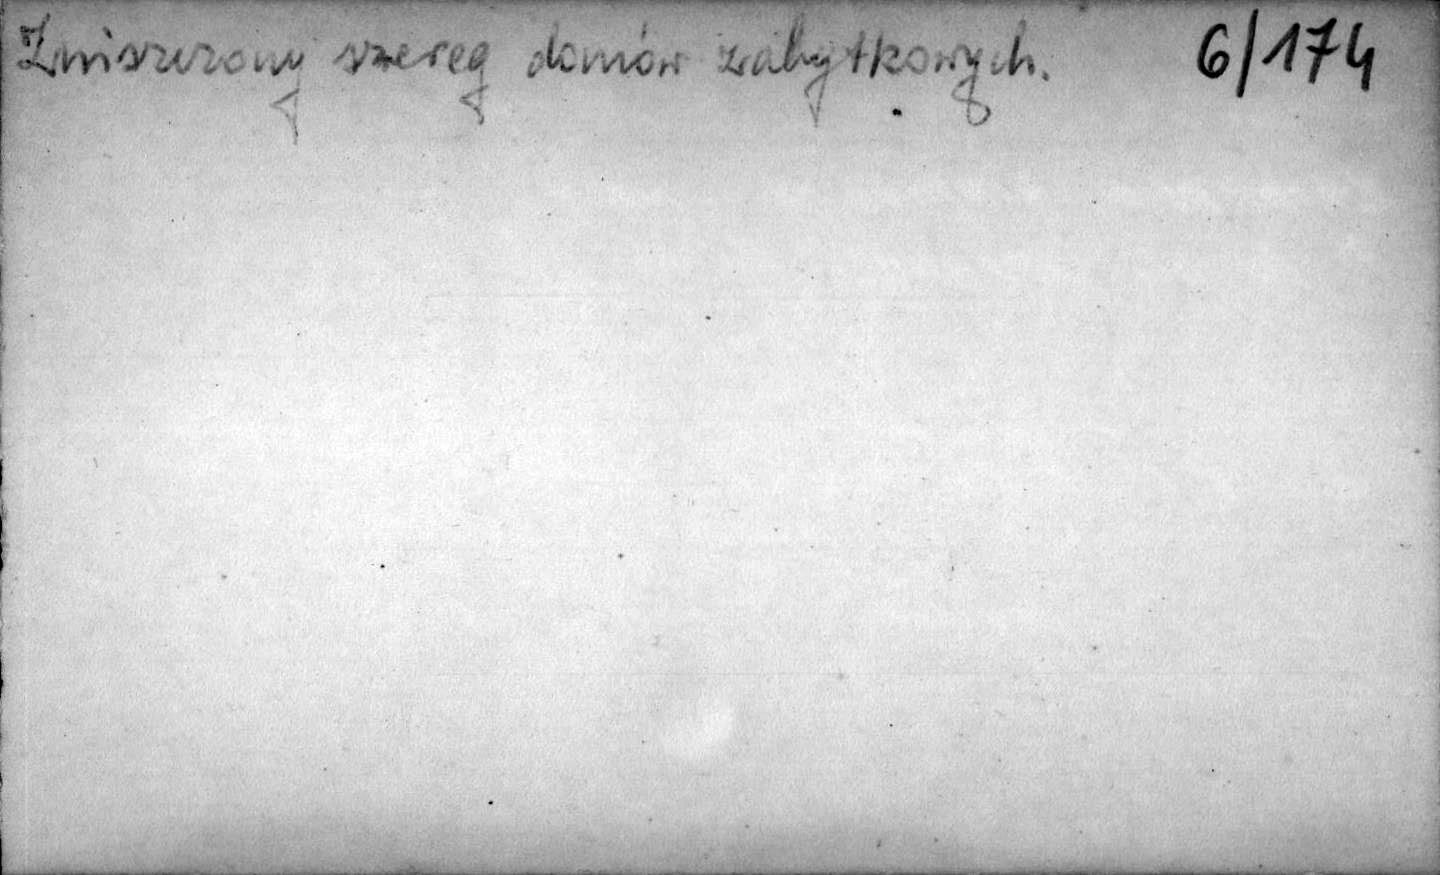 Zniszczony szereg domów zabytkowych. 6/174